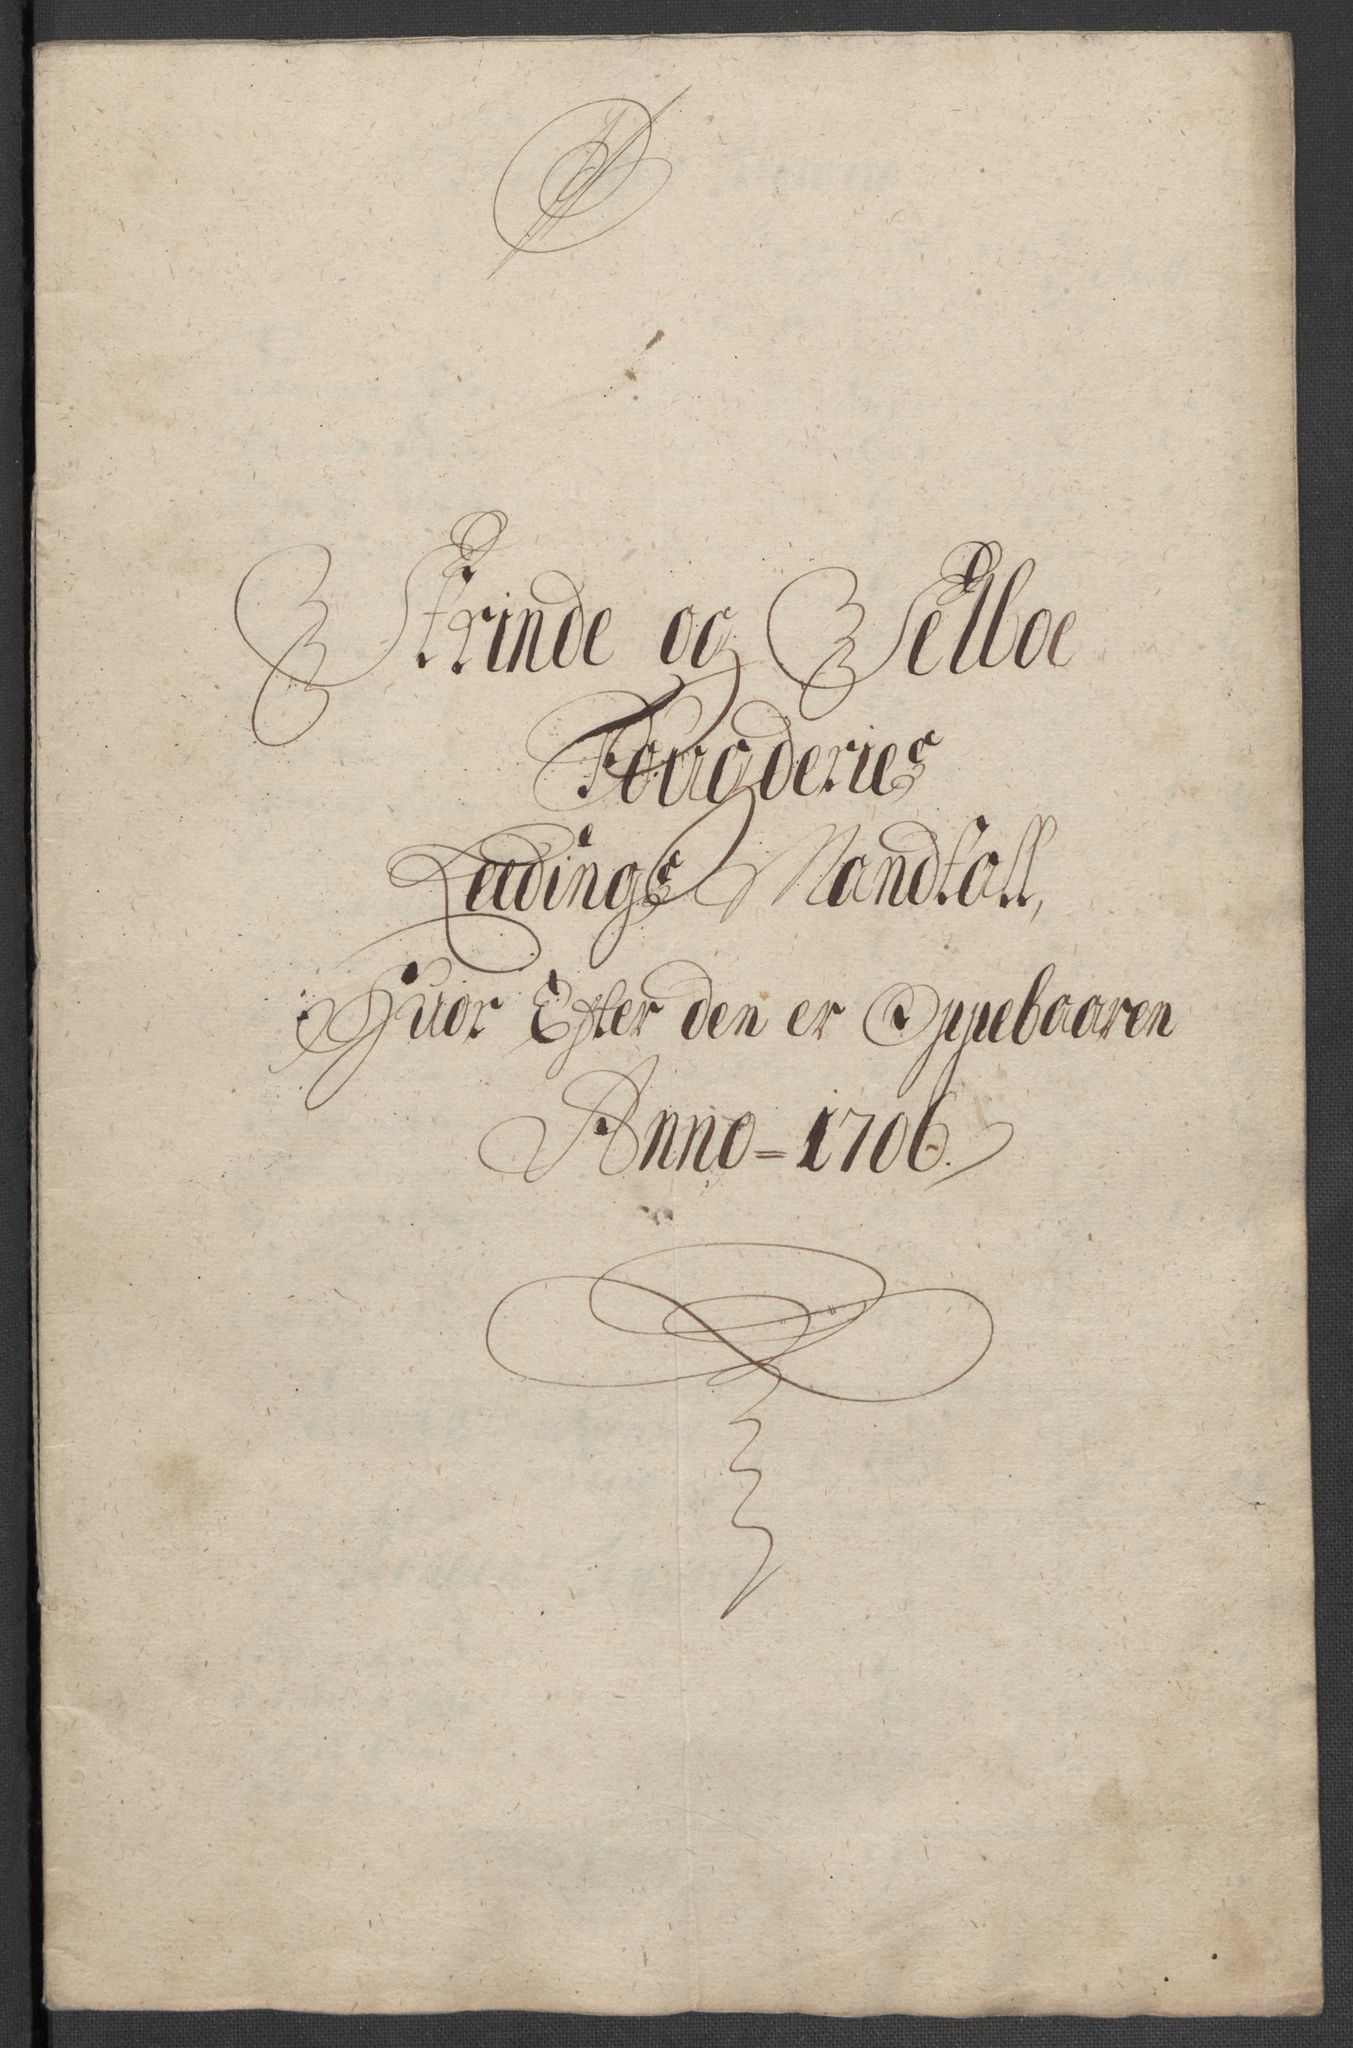 Strinde og Selboe
Fougderies
Leedings Mandtall,
Huor Efter den er Oppebaaren
Anno = 1706.